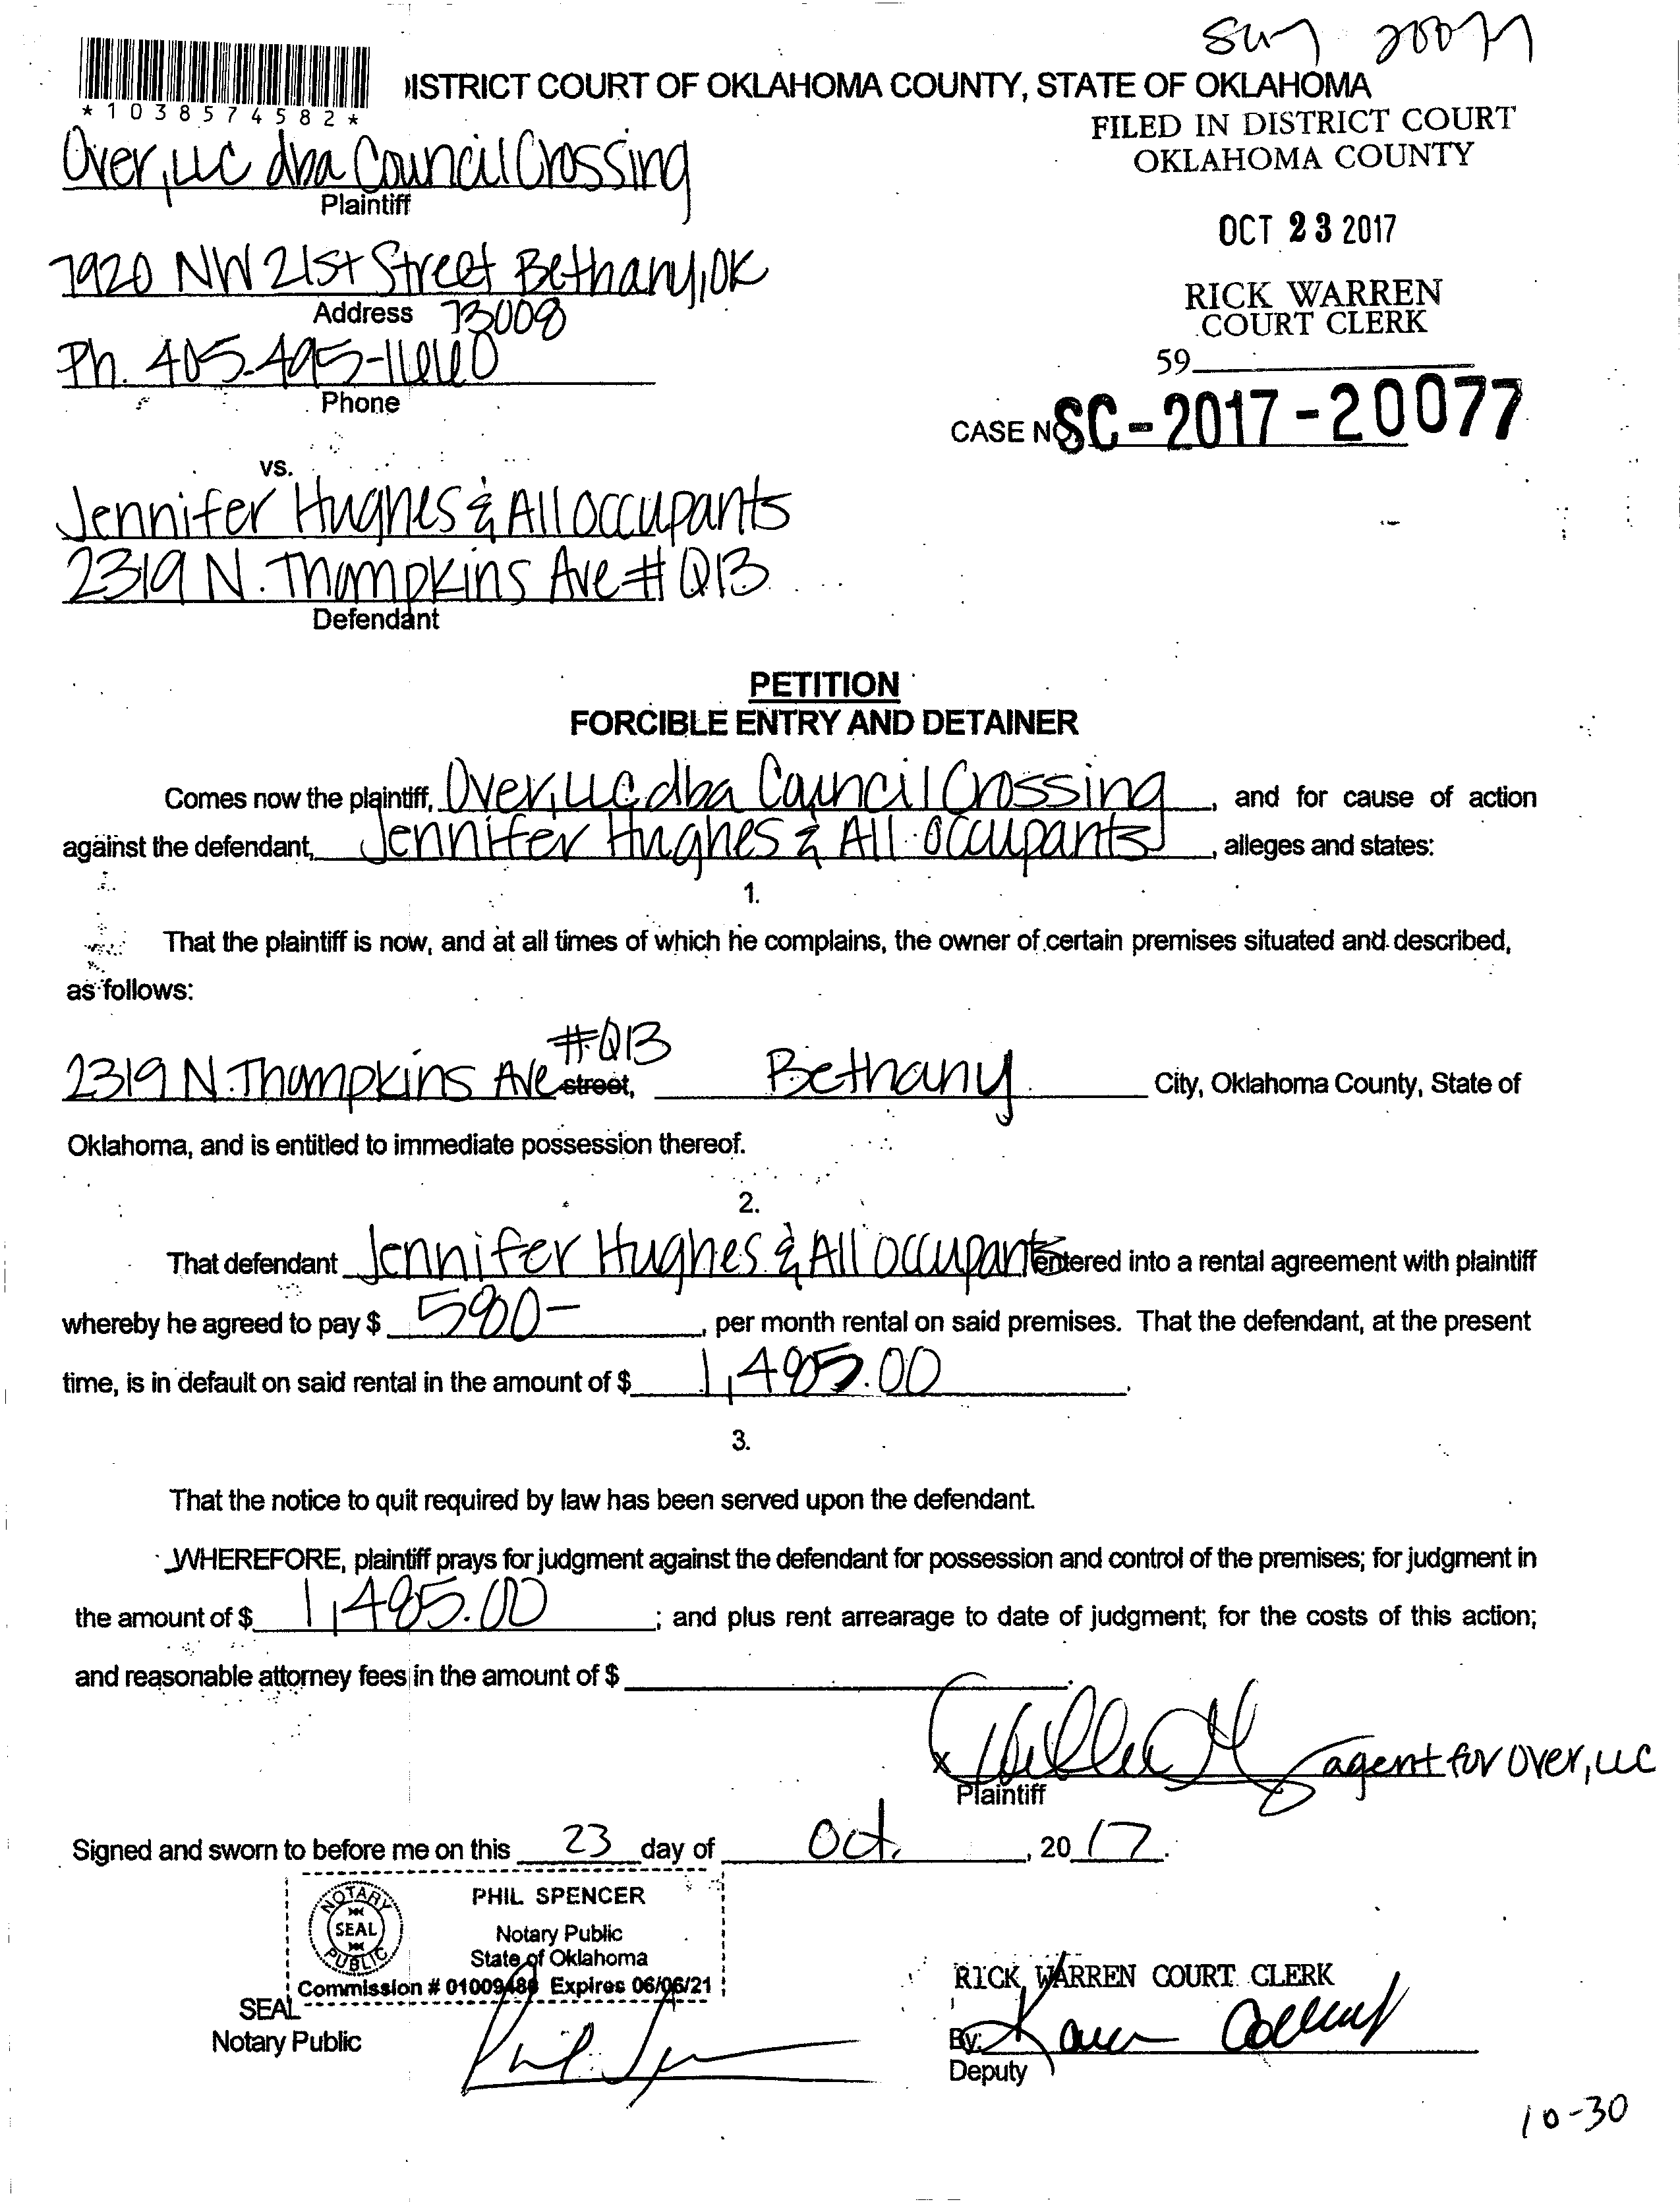 *1038574582*
ISTRICT COURT OF OKLAHOMA COUNTY, STATE OF OKLAHOMA
FILED IN DISTRICT COURT
OKLAHOMA COUNTY
OCT 23 2017
RICK WARREN
COURT CLERK
59
CASE NO SC-2017-20077
Over, LLC dba Council Crossing
Plaintiff
7920 NW 21st Street Bethany, OK
Address 73008
Ph. 405-495-1660
Phone
vs.
Jennifer Hughes & All occupants
2319 N. Thompkins Ave # Q13
Defendant
PETITION
FORCIBLE ENTRY AND DETAINER
Comes now the plaintiff, Over, LLC dba Council Crossing, and for cause of action
against the defendant, Jennifer Hughes & All occupants, alleges and states:
1.
That the plaintiff is now, and at all times of which he complains, the owner of certain premises situated and described,
as follows:
#Q13
2319 N. Thompkins Ave street, Bethany City, Oklahoma County, State of
Oklahoma, and is entitled to immediate possession thereof.
2.
That defendant Jennifer Hughes & All occupants entered into a rental agreement with plaintiff
whereby he agreed to pay $ , per month rental on said premises. That the defendant, at the present
time, is in default on said rental in the amount of $ .
3.
That the notice to quit required by law has been served upon the defendant.
WHEREFORE, plaintiff prays for judgment against the defendant for possession and control of the premises; for judgment in
the amount of $ 1,485.00 ; and plus rent arrearage to date of judgment; for the costs of this action;
and reasonable attorney fees in the amount of $ .
x agent for Over, LLC
Plaintiff
Signed and sworn to before me on this 23 day of Oct. , 20 17.
NOTARY PUBLIC
SEAL
PHIL SPENCER
Notary Public
State of Oklahoma
Commission # 01009488 Expires 06/06/21
SEAL
Notary Public
RICK WARREN COURT CLERK
By: Karen
Deputy
10-30